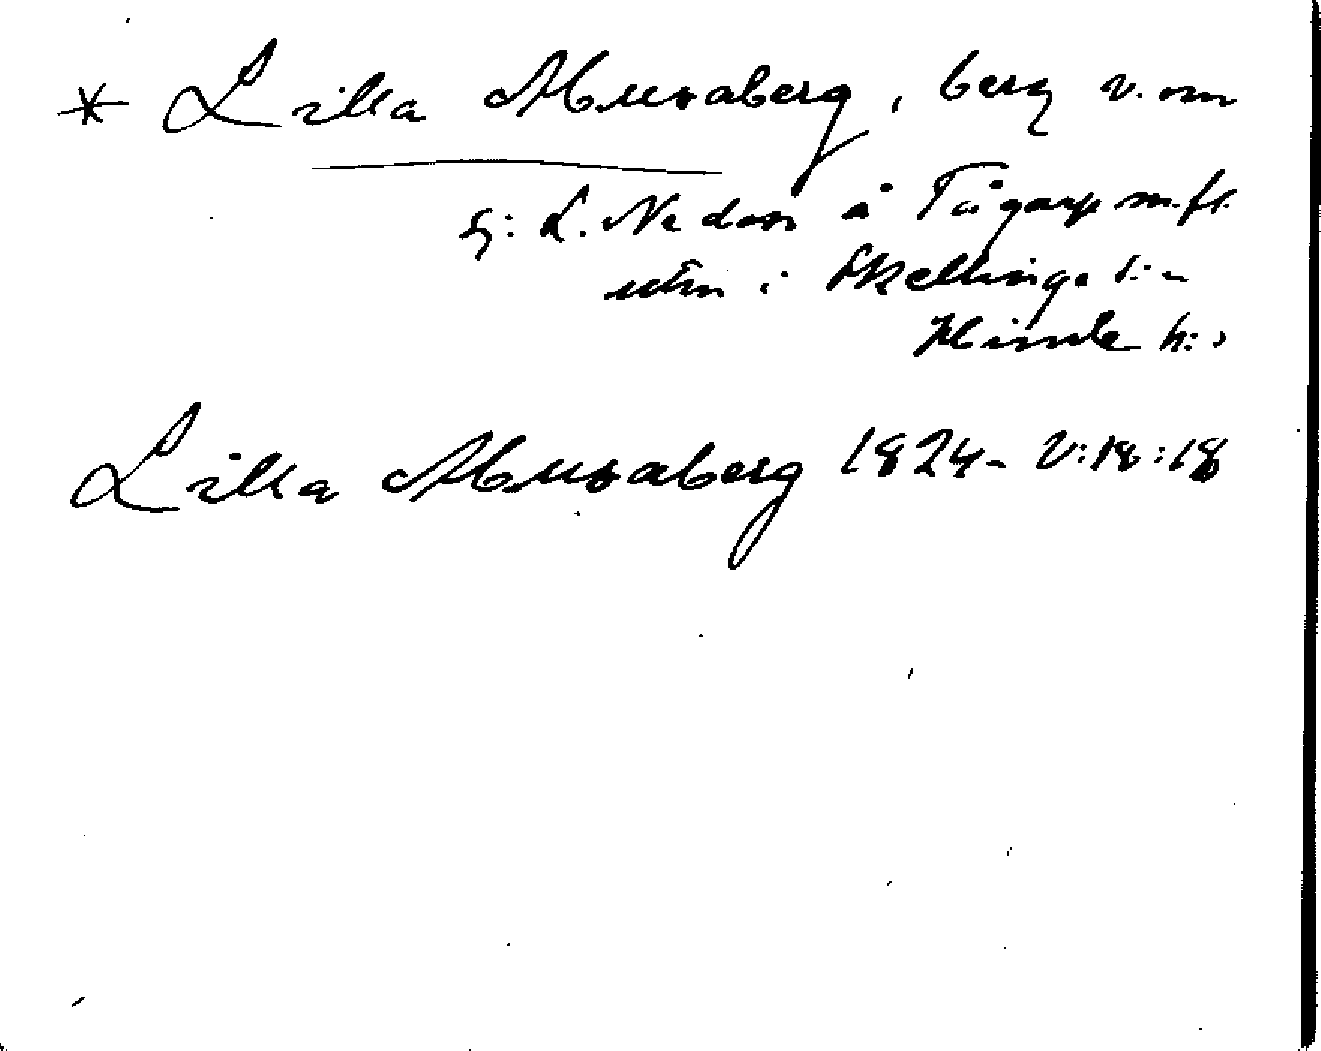 * Lilla Munkaberg, berg v. om
ź: L. Nedom å Tågarp m.fl.
utm i Skellinge s:n
Himle h:d
Lilla Munkaberg 1824 - V:18:18